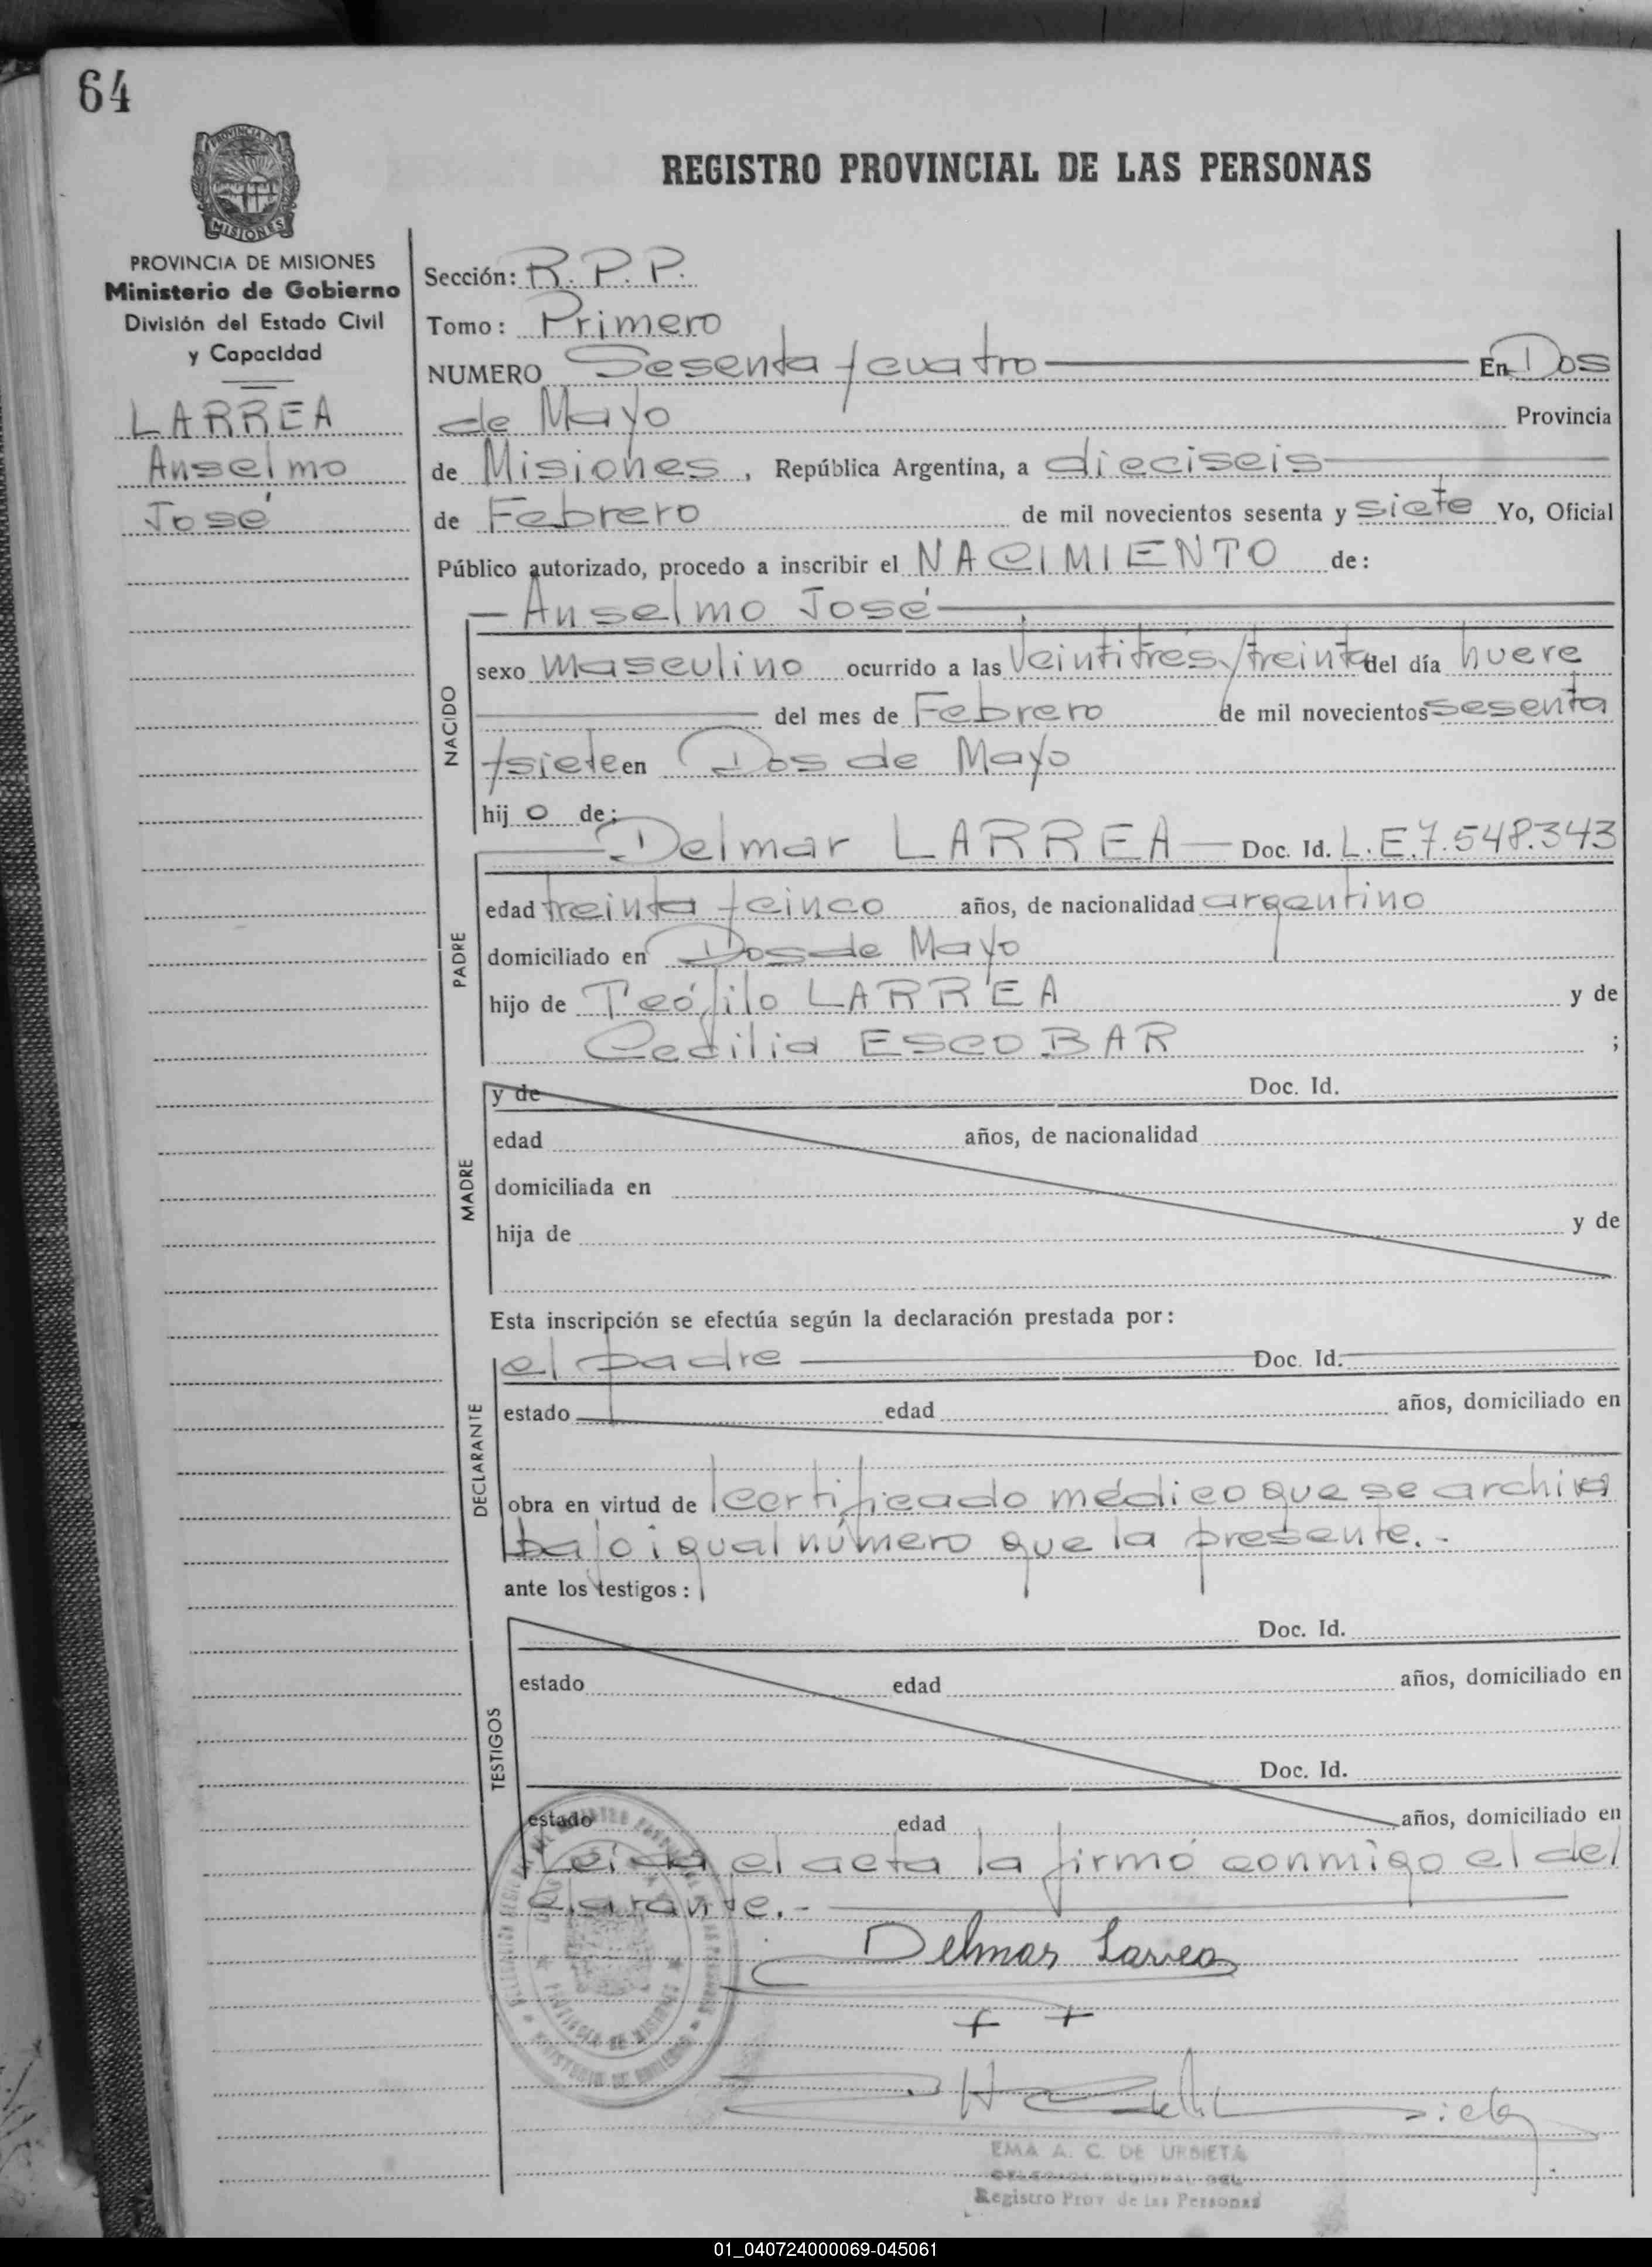 64
PROVINCIA DE
MISIONES
REGISTRO PROVINCIAL DE LAS PERSONAS
PROVINCIA DE MISIONES
Ministerio de Gobierno
División del Estado Civil
y Capacidad
LARREA
Anselmo
José
Sección: R. P. P.
Tomo: Primero
NUMERO Sesenta y cuatro En Dos
de Mayo Provincia
de Misiones, República Argentina, a dieciseis
de Febrero de mil novecientos sesenta y siete Yo, Oficial
Público autorizado, procedo a inscribir el NACIMIENTO de:
Anselmo José
NACIDO
sexo masculino ocurrido a las veintitrés y treinta del día nueve
del mes de Febrero de mil novecientos sesenta
y siete en Dos de Mayo
hij o de:
Delmar LARREA Doc. Id. L.E. 7.548.343
PADRE
edad treinta y cinco años, de nacionalidad argentino
domiciliado en Dos de Mayo
hijo de Teófilo LARREA y de
Cecilia ESCOBAR ;
MADRE
y de Doc. Id.
edad años, de nacionalidad
domiciliada en
hija de y de
Esta inscripción se efectúa según la declaración prestada por:
DECLARANTE
el padre Doc. Id.
estado edad años, domiciliado en
obra en virtud de certificado médico que se archiva
bajo igual número que la presente.-
ante los testigos:
TESTIGOS
Doc. Id.
estado edad años, domiciliado en
Doc. Id.
estado edad años, domiciliado en
Leida el acta la firmó conmigo el de
clarante.-
Delmar Larrea
EMA A. C. DE URBIETA
DELEGADA REGIONAL DEL
Registro Prov de las Personas
01_040724000069-045061